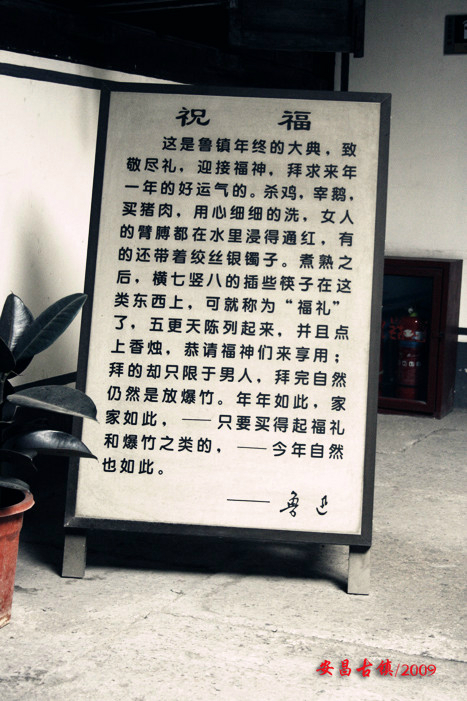 祝 福
这是鲁镇年终的大典，致
敬尽礼，迎接福神，拜求来年
一年的好运气的。杀鸡，宰鹅，
买猪肉，用心细细的洗，女人
的臂膊都在水里浸得通红，有
的还带着绞丝银镯子。煮熟之
后，横七竖八的插些筷子在这
类东西上，可就称为“福礼”
了，五更天陈列起来，并且点
上香烛，恭请福神们来享用；
拜的却只限于男人，拜完自然
仍然是放爆竹。年年如此，家
家如此，——只要买得起福礼
和爆竹之类的，——今年自然
也如此。
——鲁迅
安昌古镇/2009